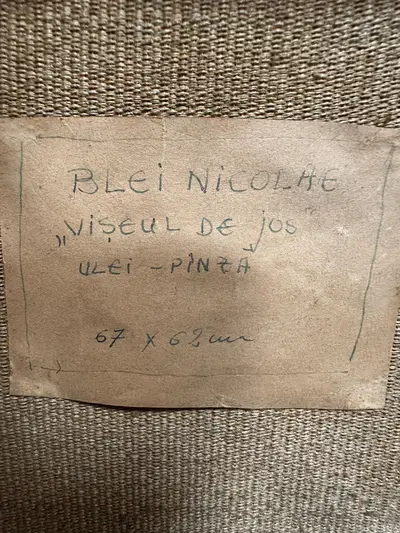 BLEI NICOLAE
„VIȘEUL DE JOS"
ULEI – PÎNZĂ
67 x 62 cm